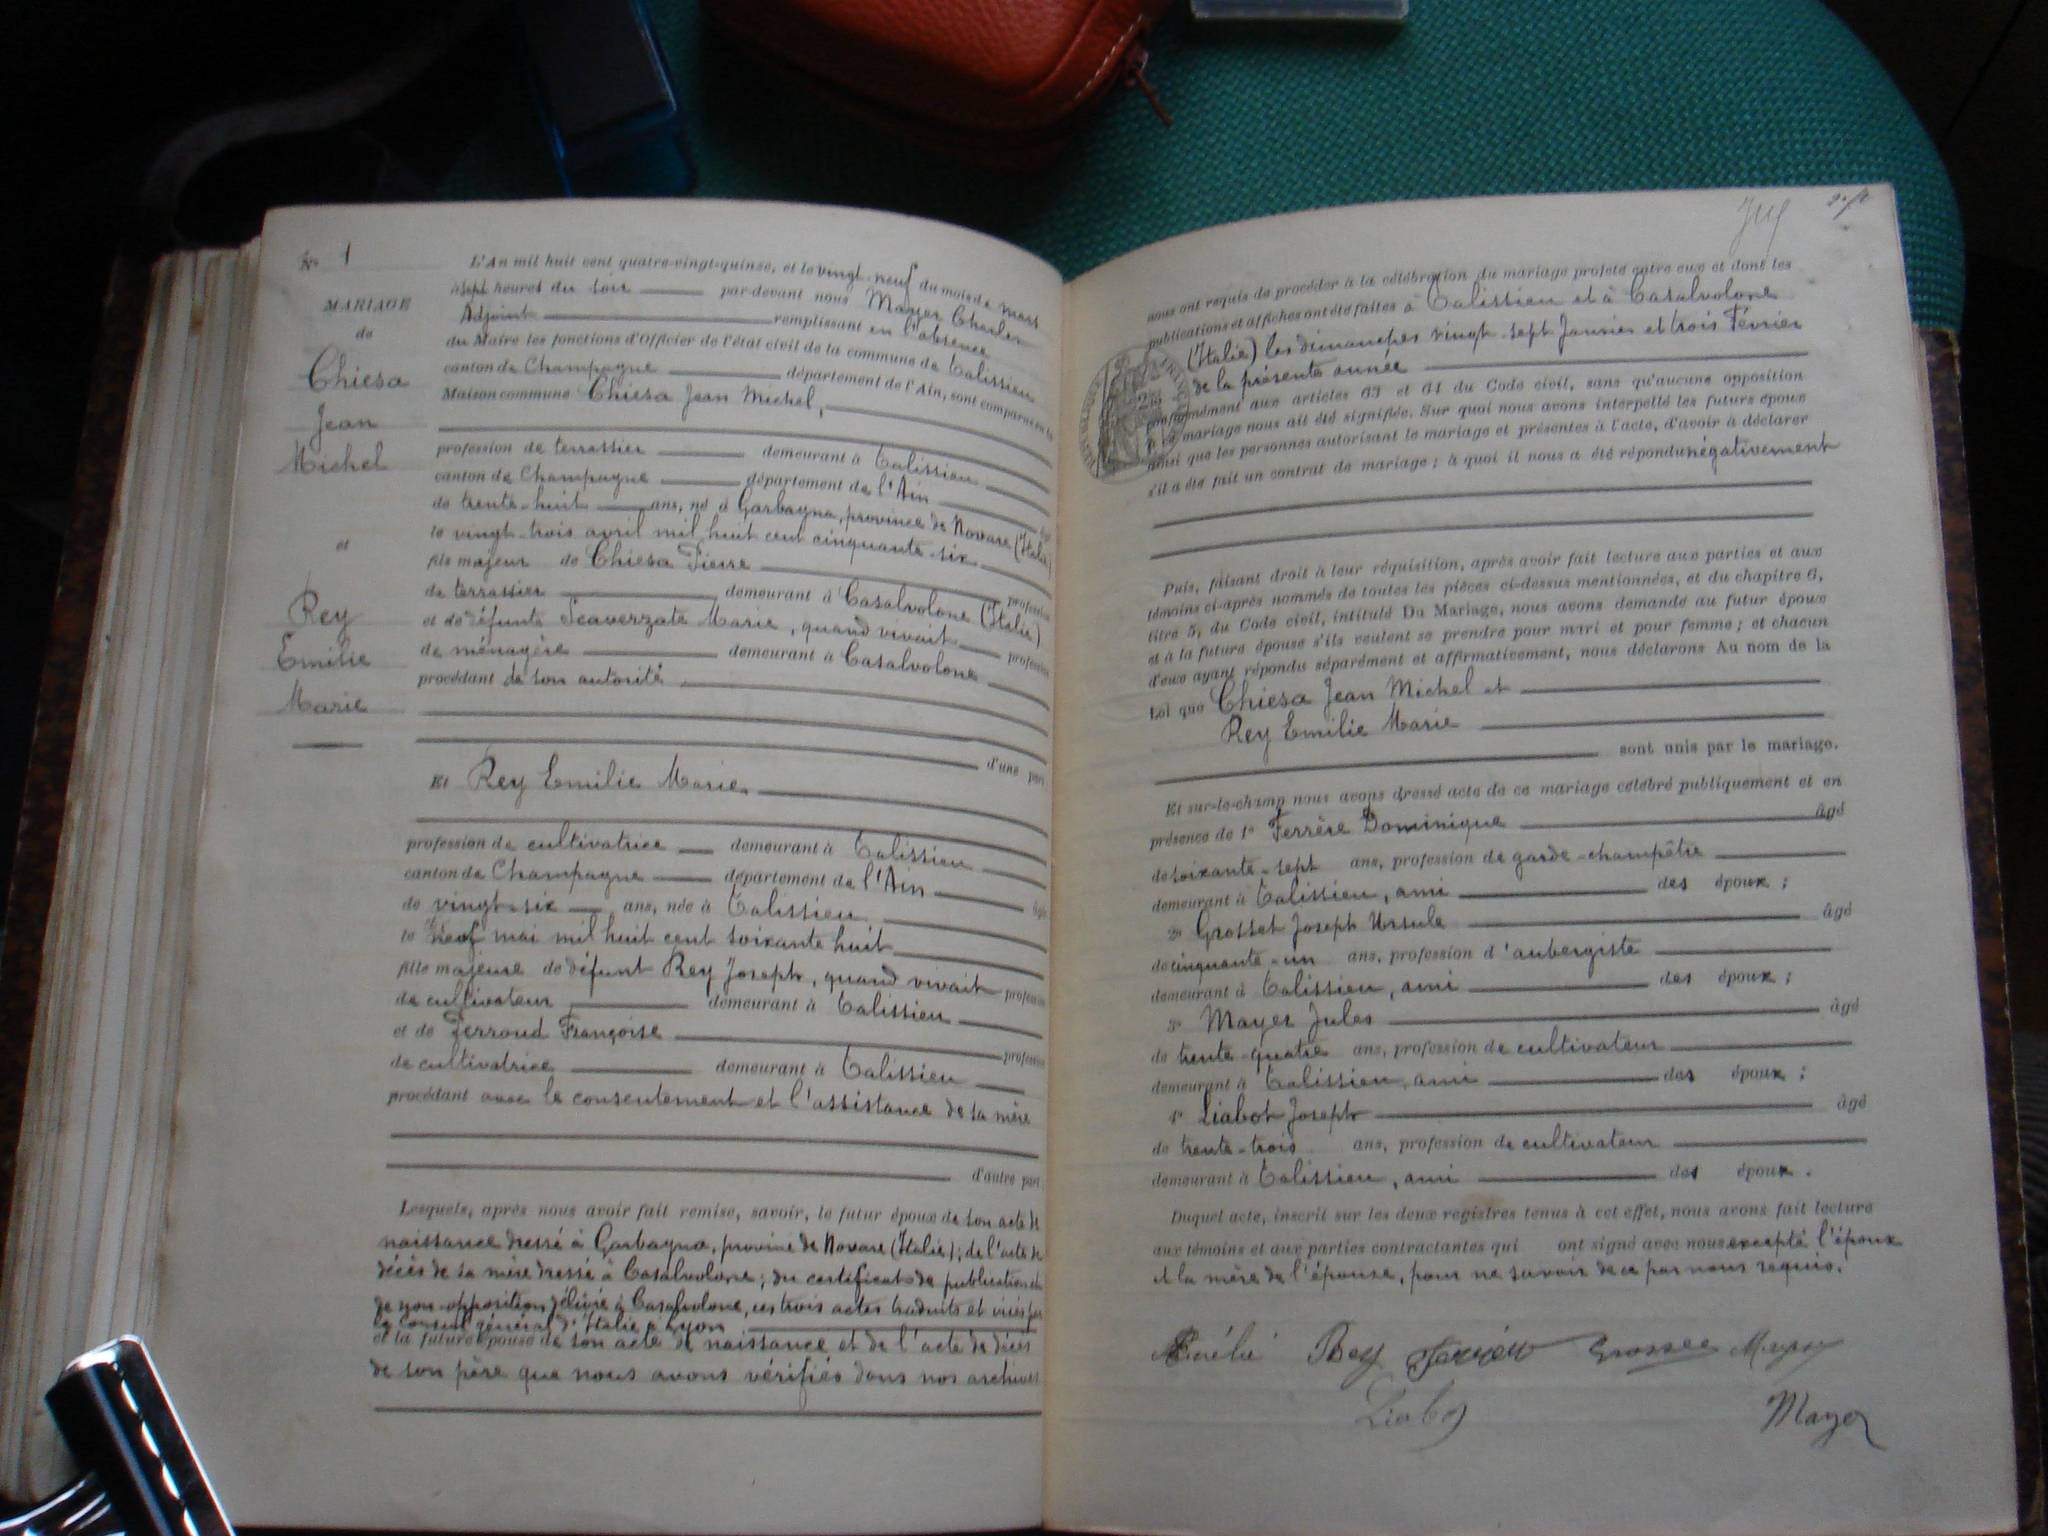 N° 1
MARIAGE
de
Chiesa
Jean
Michel
et
Rey
Emilie
Marie
L'An mil huit cent quatre-vingt-quinze, et le vingt-neuf du mois de mars
à sept heures du soir par-devant nous Mayer Charles
Adjoint remplissant en l'absence
du Maire les fonctions d'Officier de l'état civil de la commune de Talissieu
canton de Champagne département de l'Ain, sont comparus en la
Maison commune Chiesa Jean Michel,
profession de terrassier demeurant à Talissieu
canton de Champagne département de l'Ain âgé
de trente-huit ans, né à Garbagna, province de Novare (Italie)
le vingt-trois avril mil huit cent cinquante-six
fils majeur de Chiesa Pierre profession
de terrassier demeurant à Casalvolone (Italie)
et de défunte Scaverzate Marie, quand vivait profession
de ménagère demeurant à Casalvolone
procédant de son autorité
d'une part.
Et Rey Emilie Marie,
profession de cultivatrice demeurant à Talissieu
canton de Champagne département de l'Ain âgée
de vingt-six ans, née à Talissieu
le neuf mai mil huit cent soixante huit
fille majeure de défunt Rey Joseph, quand vivait profession
de cultivateur demeurant à Talissieu
et de Ferroud Françoise profession
de cultivatrice demeurant à Talissieu
procédant avec le consentement et l'assistance de sa mère
d'autre part.
Lesquels, après nous avoir fait remise, savoir, le futur époux de son acte de
naissance dressé à Garbagna, province de Novare (Italie); de l'acte de
décès de sa mère dressé à Casalvolone; du certificat de publication et
de non-opposition délivré à Casalvolone, ces trois actes traduits et visés par
le consul général d'Italie à Lyon
et la future épouse de son acte de naissance et de l'acte de décès
de son père que nous avons vérifiés dans nos archives
nous ont requis de procéder à la célébration du mariage projeté entre eux et dont les
publications et affiches ont été faites à Talissieu et à Casalvolone
(Italie) les dimanches vingt-sept Janvier et trois Février
de la présente année
conformément aux articles 63 et 64 du Code civil, sans qu'aucune opposition
à ce mariage nous ait été signifiée. Sur quoi nous avons interpellé les futurs époux
ainsi que les personnes autorisant le mariage et présentes à l'acte, d'avoir à déclarer
s'il a été fait un contrat de mariage; à quoi il nous a été répondu négativement
Puis, faisant droit à leur réquisition, après avoir fait lecture aux parties et aux
témoins ci-après nommés de toutes les pièces ci-dessus mentionnées, et du chapitre 6,
titre 5, du Code civil, intitulé Du Mariage, nous avons demandé au futur époux
et à la future épouse s'ils veulent se prendre pour mari et pour femme; et chacun
d'eux ayant répondu séparément et affirmativement, nous déclarons Au nom de la
Loi que Chiesa Jean Michel et
Rey Emilie Marie
sont unis par le mariage.
Et sur-le-champ nous avons dressé acte de ce mariage célébré publiquement et en
présence de 1° Ferrère Dominique âgé
de soixante-sept ans, profession de garde-champêtre
demeurant à Talissieu, ami des époux;
2° Grosset Joseph Ursule âgé
de cinquante-un ans, profession d'aubergiste
demeurant à Talissieu, ami des époux;
3° Mayer Jules âgé
de trente-quatre ans, profession de cultivateur
demeurant à Talissieu, ami des époux;
4° Liabot Joseph âgé
de trente-trois ans, profession de cultivateur
demeurant à Talissieu, ami des époux.
Duquel acte, inscrit sur les deux registres tenus à cet effet, nous avons fait lecture
aux témoins et aux parties contractantes qui ont signé avec nous excepté l'époux
et la mère de l'épouse, pour ne savoir de ce par nous requis.
Rey Grosset Mayer
Liabot Mayer